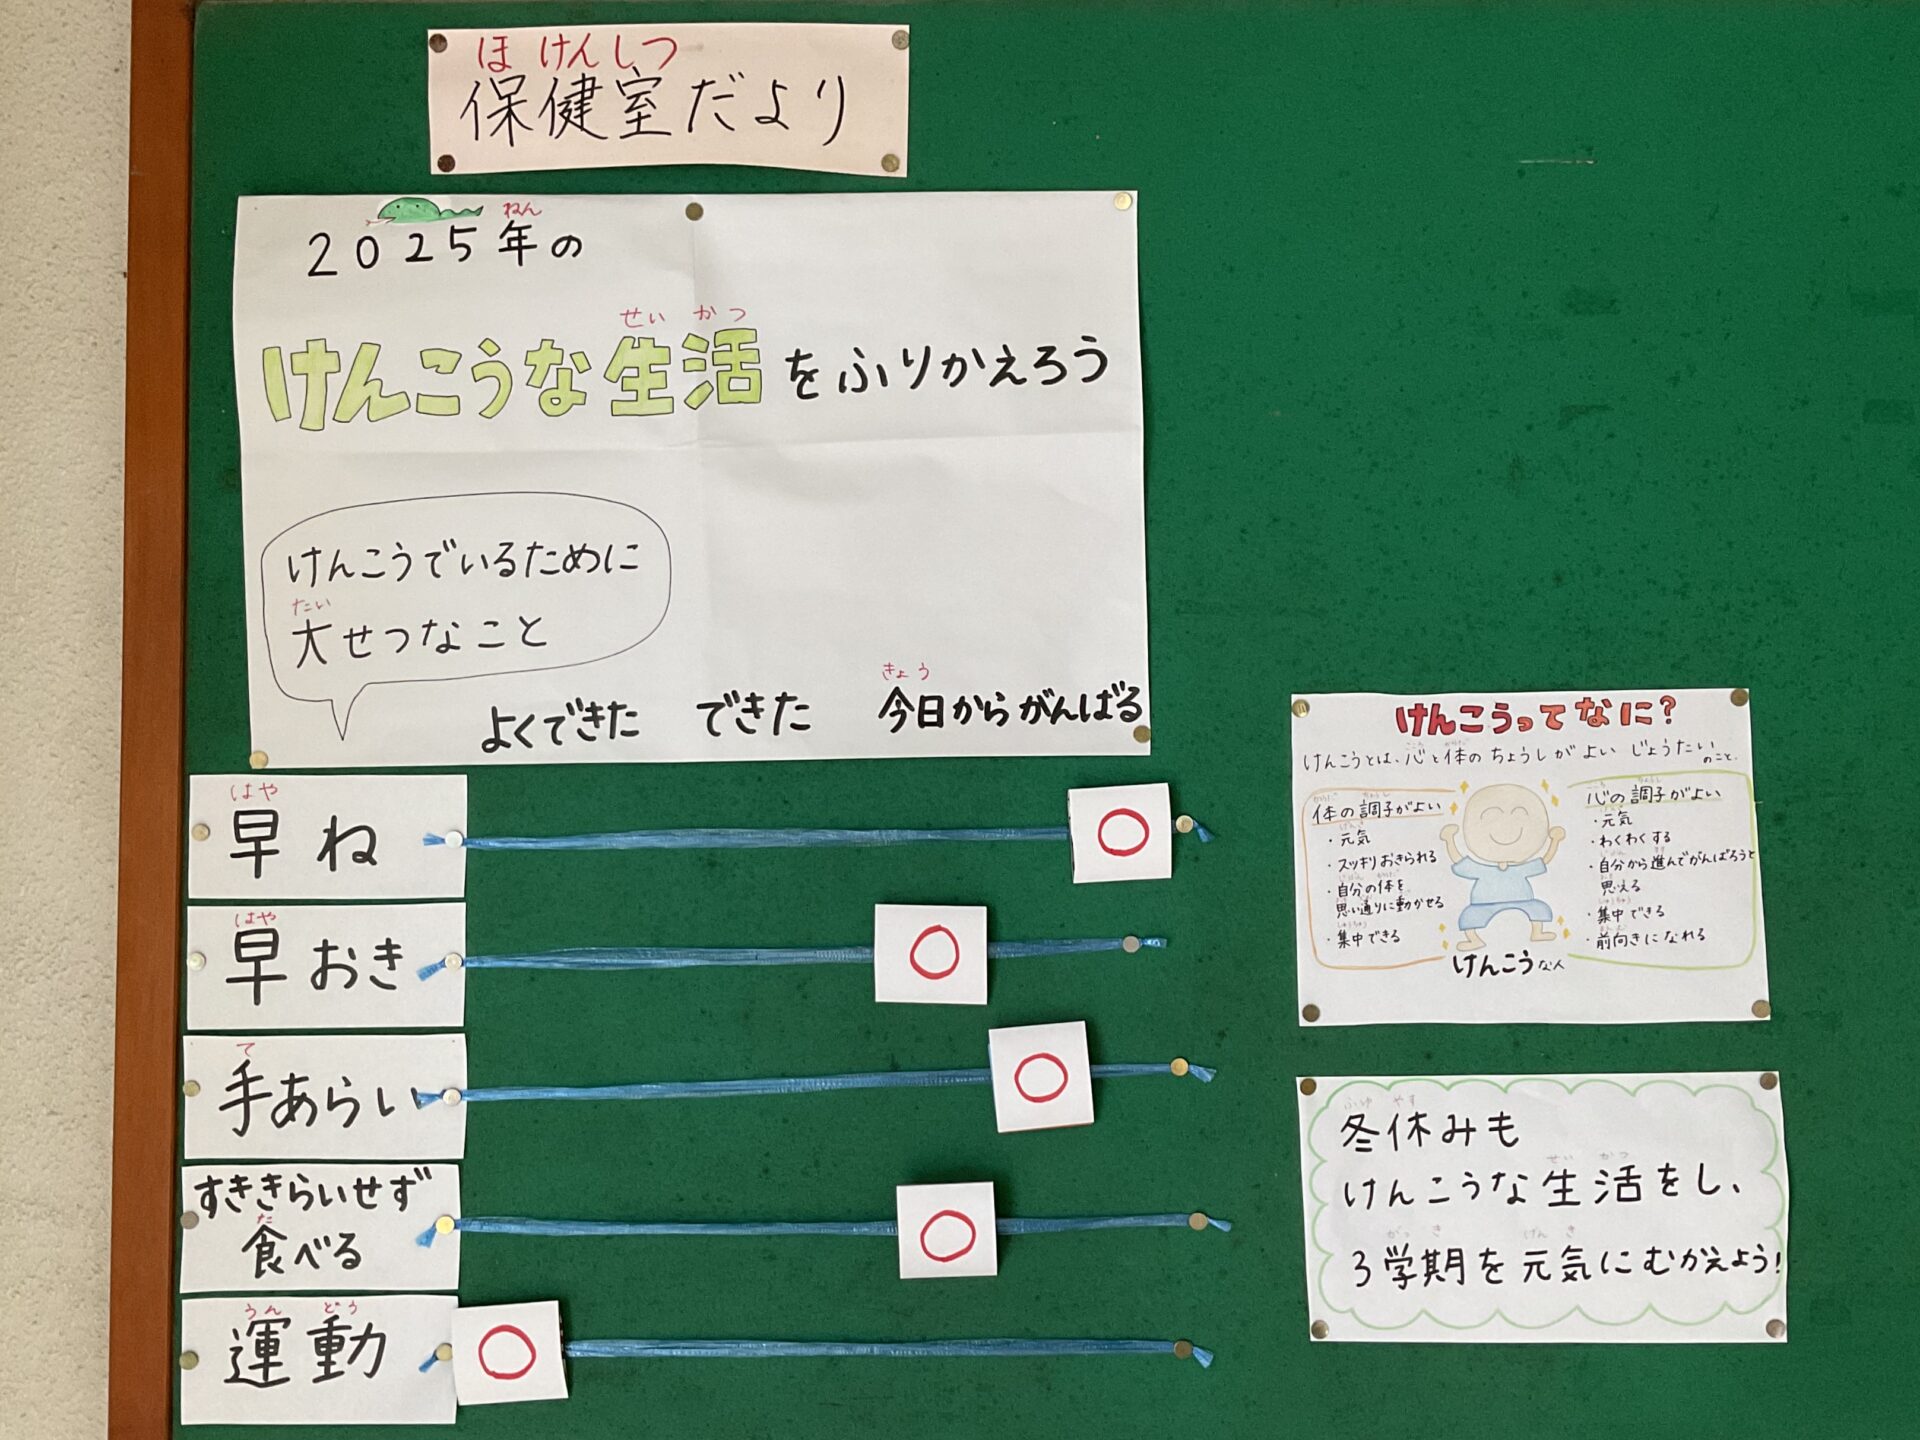 ほけんしつ
保健室だより
ねん
2025年の
せいかつ
けんこうな生活をふりかえろう
けんこうでいるために
たい
大せつなこと
きょう
よくできた できた 今日からがんばる
はや
早ね
○
はや
早おき
○
て
手あらい
○
すききらいせず
た
食べる
○
うんどう
運動
○
けんこうってなに?
こころ からだ
けんこうとは、心と体のちょうしがよいじょうたい
のこと。
からだ ちょうし
体の調子がよい
げんき
・元気
・スッキリおきられる
じぶん からだ
・自分の体を
思い通りに動かせる
しゅうちゅう
・集中できる
ちょうし
心の調子がよい
・元気
・わくわくする
・自分から進んでがんばろうと
思える
しゅうちゅう
・集中できる
・前向きになれる
けんこうな人
ふゆ やす
冬休みも
せい かつ
けんこうな生活をし、
がっ き げん き
3学期を元気にむかえよう!